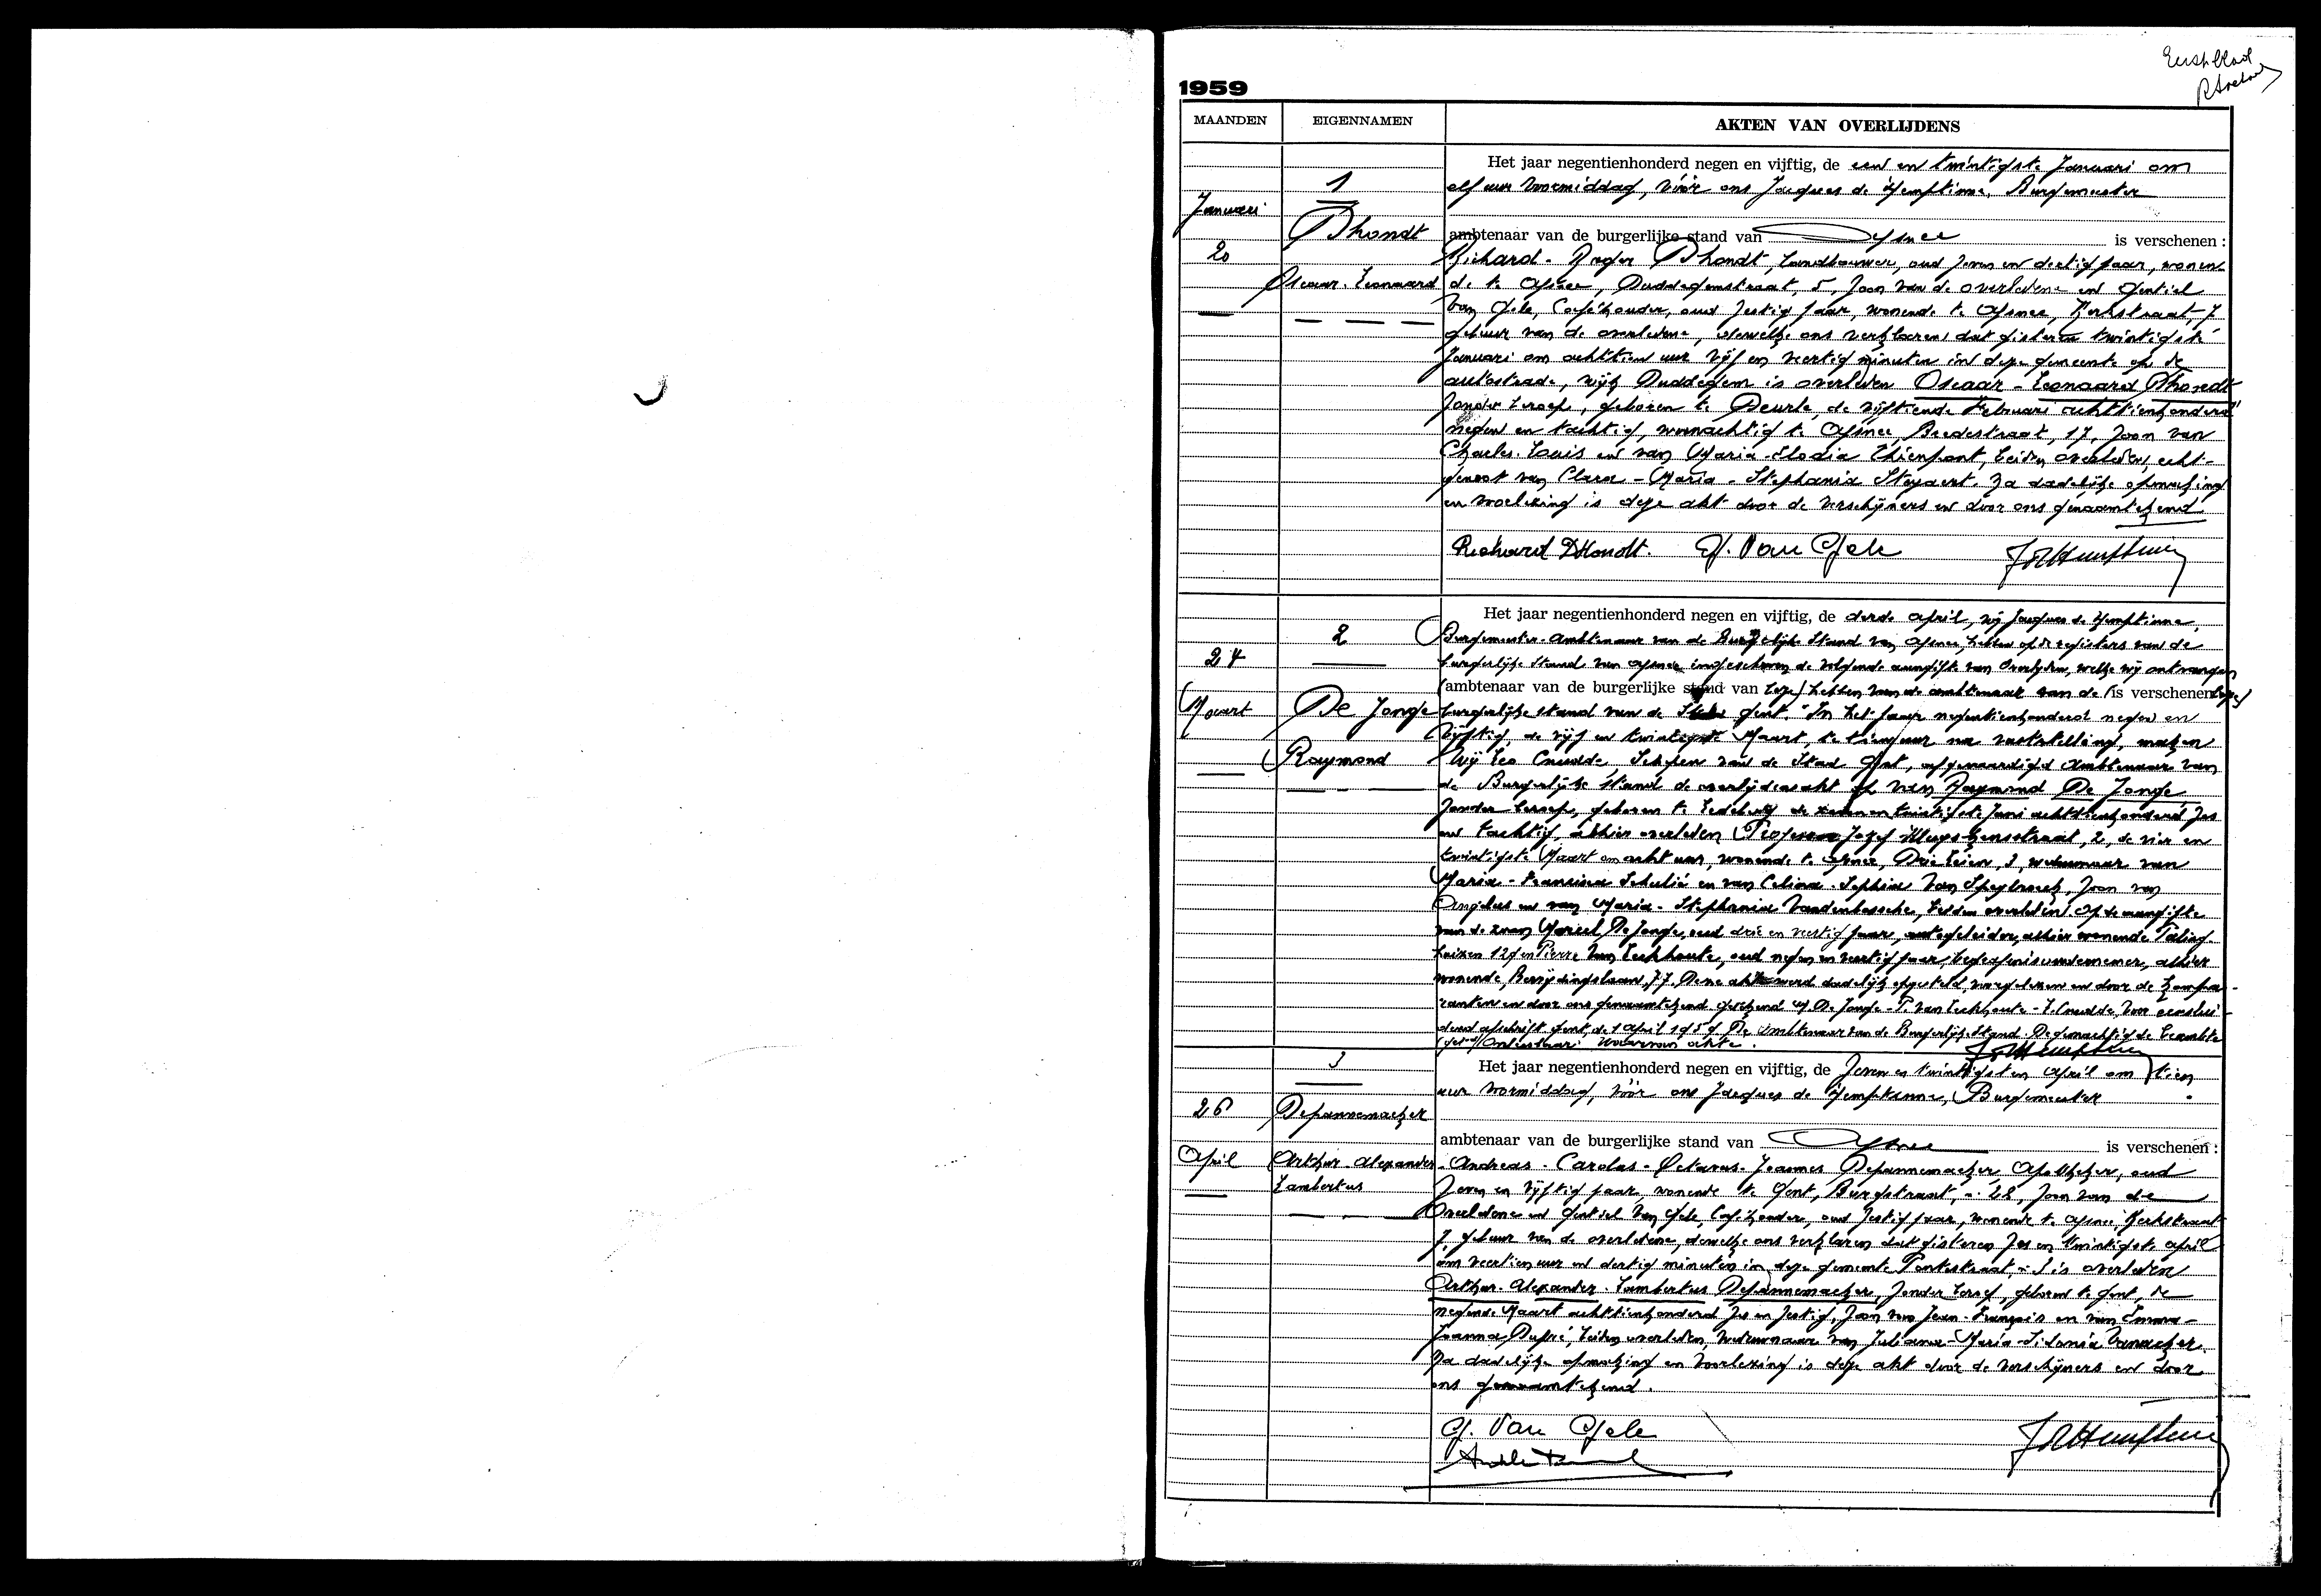 Eerste blad
1959
MAANDEN EIGENNAMEN AKTEN VAN OVERLIJDENS
Januari
20
1
Dhondt
Oscaar-Leonaard
Het jaar negentienhonderd negen en vijftig, de een en twintigste Januari om
elf uur voormiddag, vóór ons Jacques de Hemptinne, Burgemeester
ambtenaar van de burgerlijke stand van Afsnee is verschenen :
Richard-Roger Dhondt, landbouwer, oud zeven en dertig jaar, wonen-
de te Afsnee, Duddegemstraat, 5, zoon van de overledene en Gentiel
Van Gele, Caféhouder, oud zestig jaar, wonende te Afsnee, Kerkstraat, 7
gebuur van de overledene, dewelke ons verklaren dat gisteren twintigste
Januari om achttien uur vijf en veertig minuten in deze gemeente op de
autostrade, wijk Duddegem is overleden Oscaar-Leonaard Dhondt
zonder beroep, geboren te Deurle, de vijftiende Februari achttienhonderd
negen en tachtig, woonachtig te Afsnee, Beedestraat, 17, zoon van
Charles-Louis en van Maria-Elodia Thienpont, beiden overleden, echt-
genoot van Clara-Maria-Stephania Steyaert. Na dadelijke opmaking
en voorlezing is deze akt door de verschijners en door ons genaamtekend
Richard DHondt. G. Van Gele JdHemptinne
24
Maart
2
De Jonge
Raymond
Het jaar negentienhonderd negen en vijftig, de derde april, wij Jacques de Hemptinne,
Burgemeester-Ambtenaar van de Burgelijke Stand van Afsnee, hebben op de registers van de
burgerlijke Stand van Afsnee ingeschreven de volgende aangifte van Overlijden, welke wij ontvangen
(ambtenaar van de burgerlijke stand van hebben van de ambtenaar van de (is verschenen
burgerlijke stand van de Gent. "In het jaar negentienhonderd negen en
vijftig, de vijf en twintigste Maart, te tien uur na vaststelling, maken
Wij Leo Cnudde, Schepen van de Stad Gent, afgevaardigd Ambtenaar van
de Burgerlijke Stand de overlijdensakt op van Raymond De Jonge
zonder beroep, geboren te Ledeberg de twintigste Juni achttienhonderd zes
en tachtig, alhier overleden Professor Jozef Kluyskensstraat, 2, de vier en
twintigste Maart om acht uur, wonende te Afsnee, Drie Leien, 3, weduwnaar van
Maria-Francisca en van Celina-Sophia Van Speybroeck, zoon van
Angelus en van Maria-Stephania Vandenbossche, beiden overleden. Op de aangifte
van de zoon Marcel De Jonge, oud drie en veertig jaar, autogeleider, alhier wonende Paling-
huizen 129 en Pierre Van Eeckhoute, oud negen en veertig jaar, begrafenisondernemer, alhier
wonende, Bevrijdingslaan, 77. Deze akt werd dadelijk opgesteld, voorgelezen en door de kompa-
ranten en door ons genaamtekend. getekend M De Jonge - P. Van Eeckhoute - L. Cnudde, Voor eenslui-
dend afschrift Gent, de 1 April 1959 De Ambtenaar van de Burgerlijke Stand. De gemachtigde beambte
Waarvan akte.
JdHemptinne
26
April
3
Depannemaeker
Arthur-Alexander
Lambertus
Het jaar negentienhonderd negen en vijftig, de zeven en twintigsten April om tien
uur voormiddag, vóór ons Jacques de Hemptinne, Burgemeester
ambtenaar van de burgerlijke stand van Afsnee is verschenen :
Andreas-Carolus-Octavus-Joannes Depannemaeker, Apotheker, oud
zeven en vijftig jaar, wonende te Gent, Burgstraat, n. 28, zoon van de
Overledene en Gentiel Van Gele, Caféhouder, oud zestig jaar, wonende te Afsnee, Kerkstraat
7 gebuur van de overledene, dewelke ons verklaren dat gisteren zes en twintigste april
om veertien uur en dertig minuten in deze gemeente Pontstraat, is overleden
Arthur-Alexander-Lambertus Depannemaeker, zonder beroep, geboren te Gent, de
negende Maart achttienhonderd zes en zestig, zoon van Jean-François en van Emma-
Joanna Dupré, beiden overleden, weduwnaar van Juliana-Maria-Sidonia Vanacker.
Na dadelijke opmaking en voorlezing is deze akt door de verschijners en door
ons genaamtekend.
G. Van Gele JdHemptinne